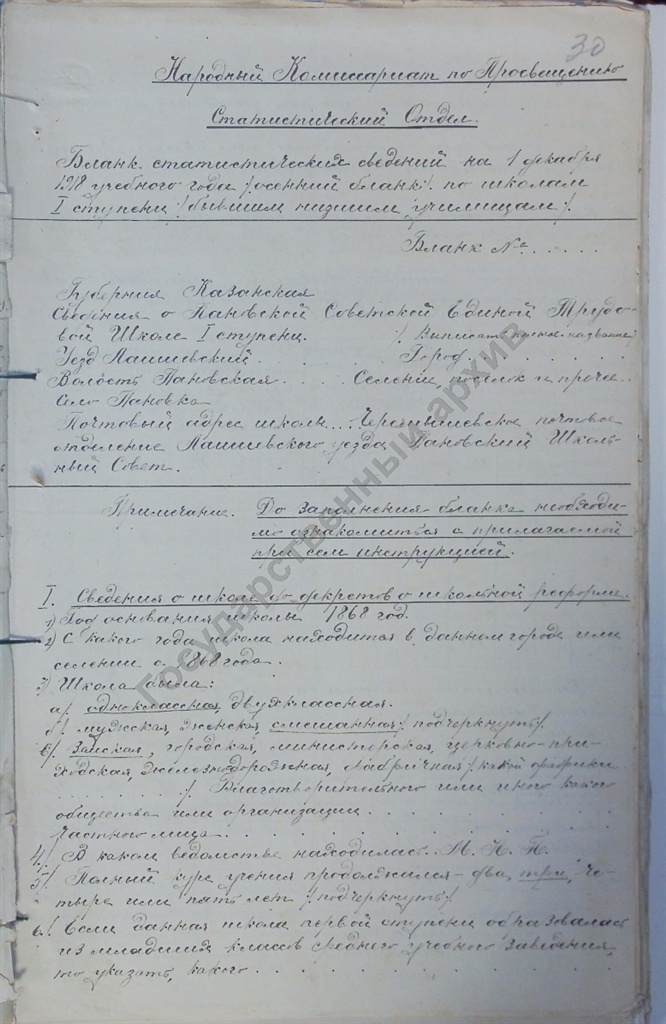 30
Народный Комиссариат по Просвещению
Статистический Отдел.
Бланк статистических сведений на 1 декабря
1918 учебного года /осенний бланк/ по школам
I ступени /бывшим низшим училищам/.
Бланк №......
Губерния Казанская
Сведения о Пановской Советской Единой Трудо-
вой Школе I ступени. /Выписать полное название/
Уезд Лаишевский. . . . Город. . . . . . .
Волость Пановская. . . . Селение, поселок и проче.
Село Пановка
Почтовый адрес школы... Черемышевское почтовое
отделение Лаишевского уезда Пановский Школь-
ный Совет.
Примечание. До заполнения бланка необходи-
мо ознакомиться с прилагаемой
при сем инструкцией.
I. Сведения о школе до декретов о школьной реформе.
1) Год основания школы 1868 год.
2) С какого года школа находится в данном городе или
селении с 1868 года.
3) Школа была:
а/ одноклассная, двухклассная.
б/ мужская, женская, смешанная /подчеркнуть/.
в/ Земская, городская, министерская, церковно-при-
ходская, железнодорожная, фабричная /какой фабрики
. . . . . . . / Благотворительного или иного какого
общества или организации. . . . . . . .
Частного лица. . . . . . . . . . . .
4/. В каком ведомстве находилась М. Н. П.
5/. Полный курс учения продолжался - два, три, че-
тыре или пять лет /подчеркнуть/.
6/. Если данная школа первой ступени образовалась
из младших классов среднего учебного заведения,
то указать, какого. . . . . . . . . . .
Государственный архив